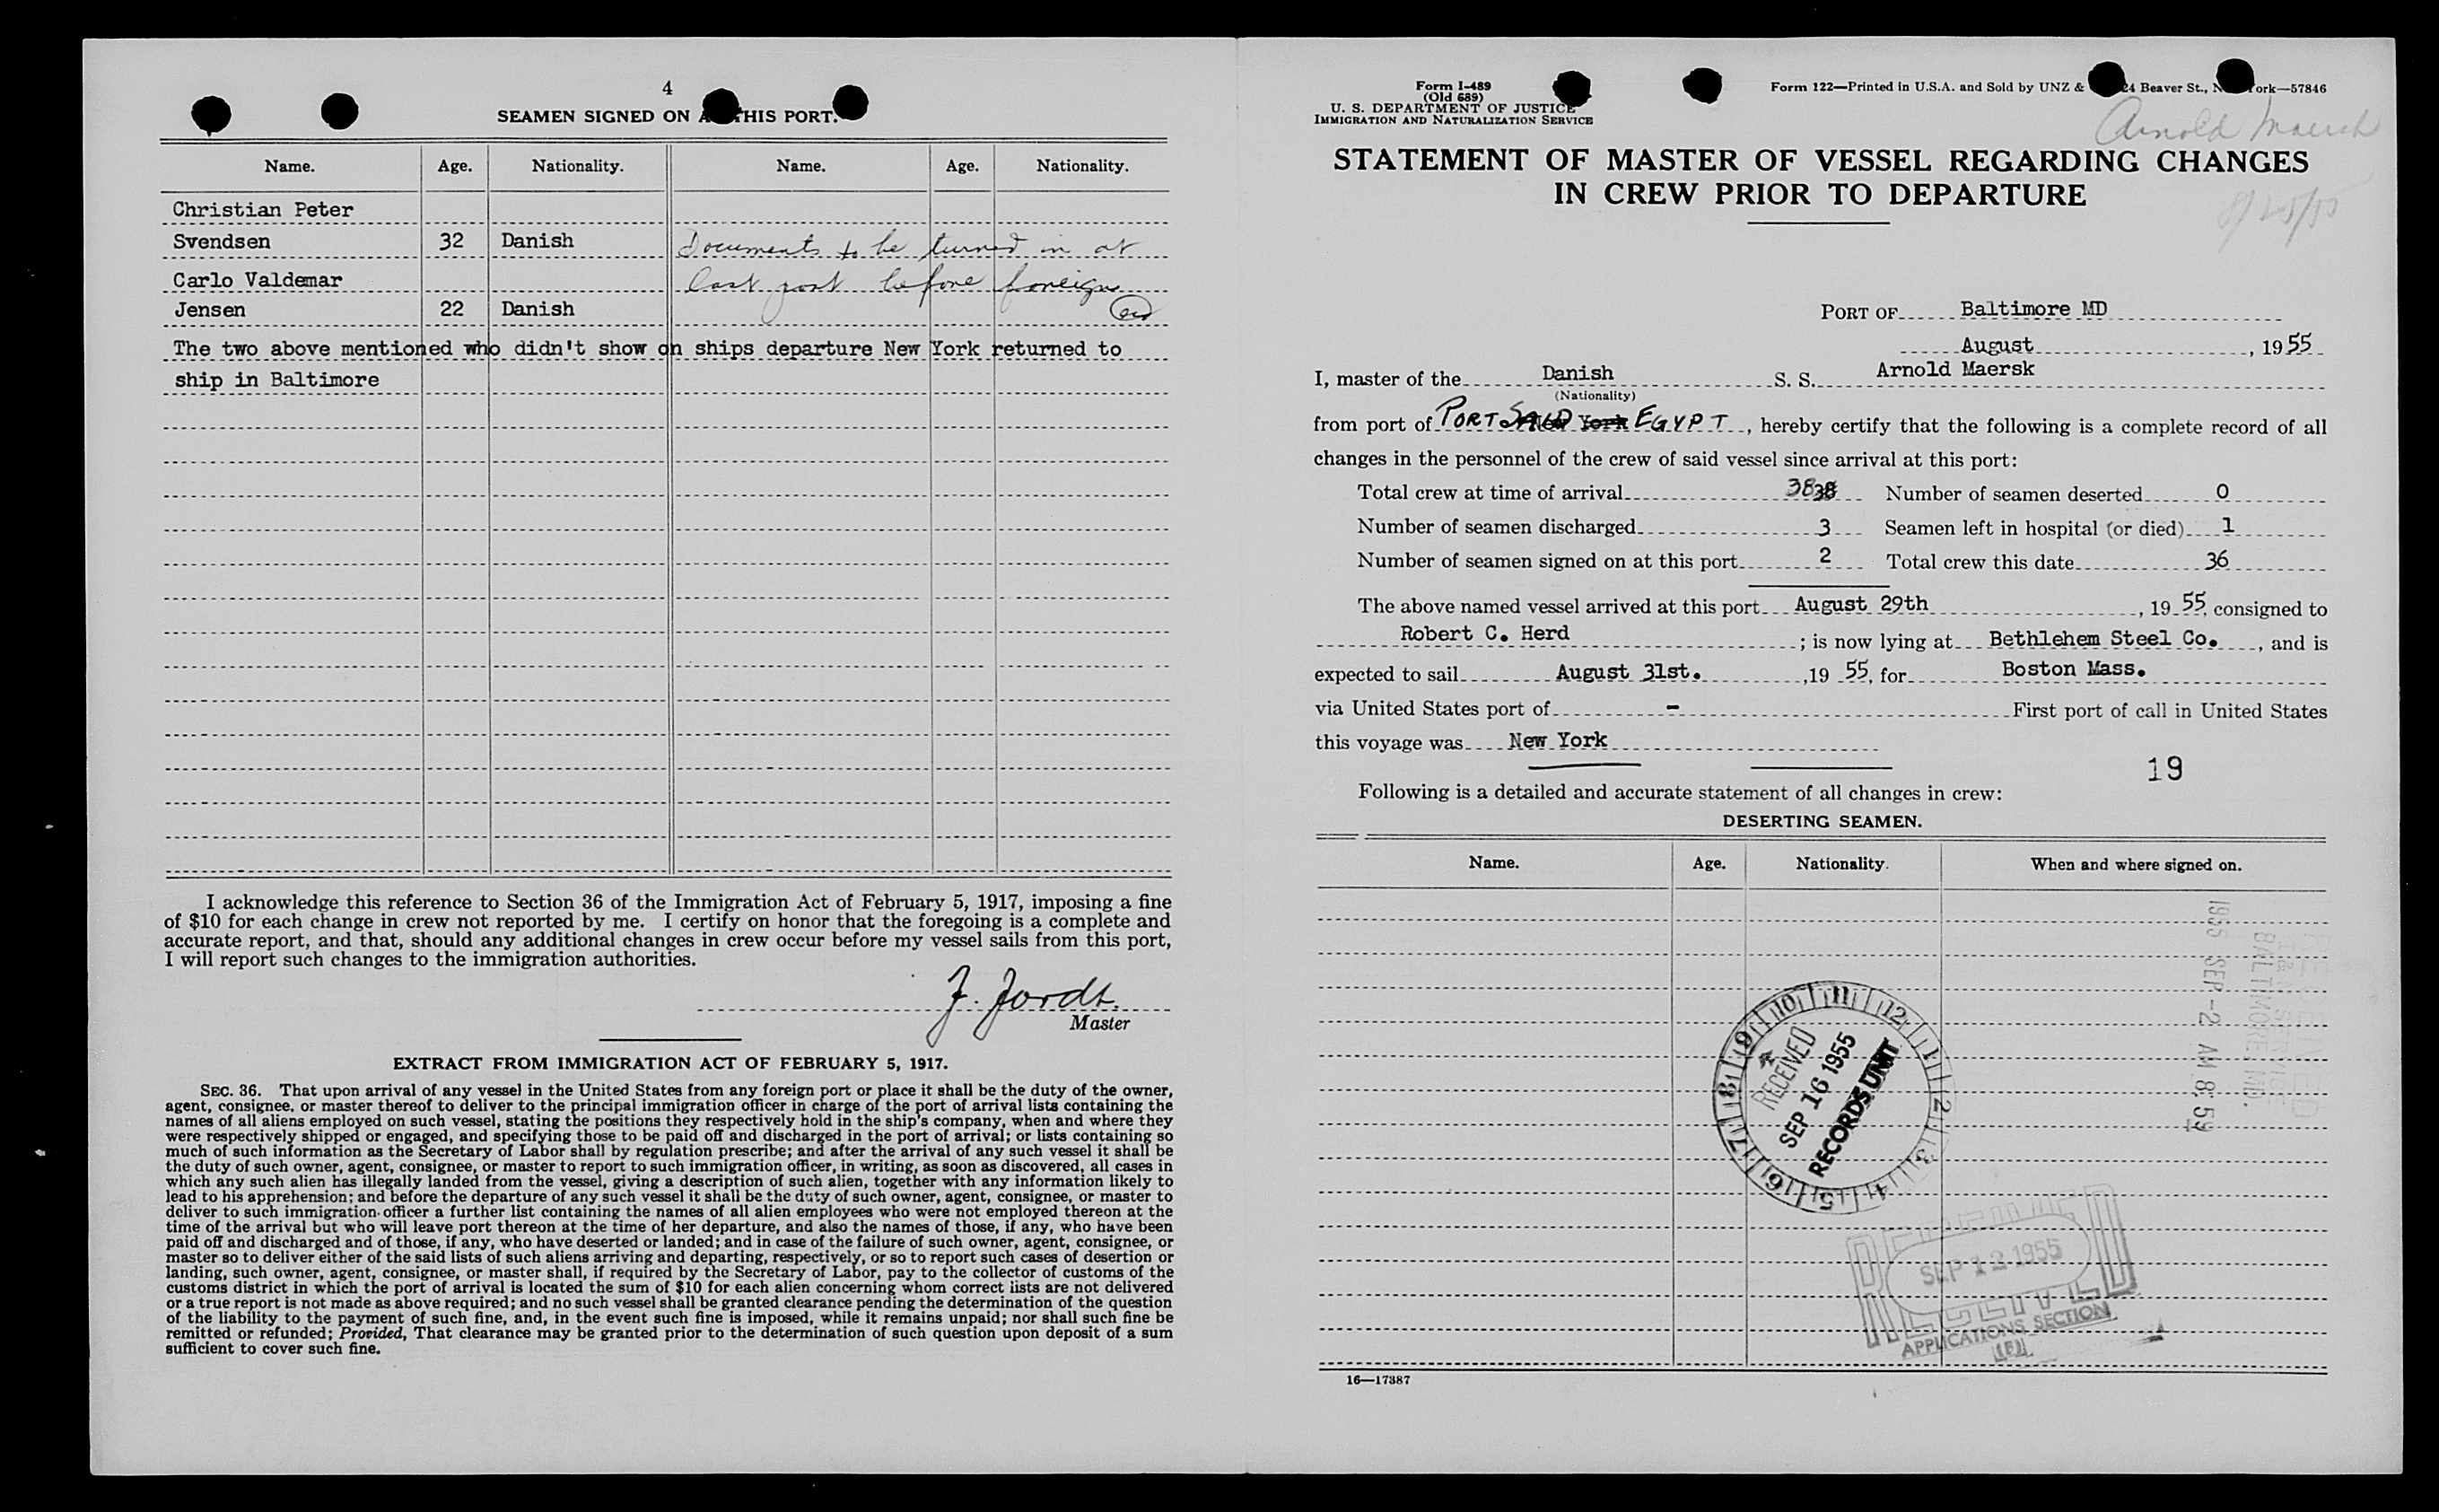 4
SEAMEN SIGNED ON A THIS PORT.
Name. Age. Nationality. Name. Age. Nationality.
Christian Peter
Svendsen 32 Danish Documents to be turned in at
Carlo Valdemar last port before foreign
Jensen 22 Danish
The two above mentioned who didn't show on ships departure New York returned to
ship in Baltimore
I acknowledge this reference to Section 36 of the Immigration Act of February 5, 1917, imposing a fine
of $10 for each change in crew not reported by me. I certify on honor that the foregoing is a complete and
accurate report, and that, should any additional changes in crew occur before my vessel sails from this port,
I will report such changes to the immigration authorities.
J. Jordt.
Master
EXTRACT FROM IMMIGRATION ACT OF FEBRUARY 5, 1917.
SEC. 36. That upon arrival of any vessel in the United States from any foreign port or place it shall be the duty of the owner,
agent, consignee, or master thereof to deliver to the principal immigration officer in charge of the port of arrival lists containing the
names of all aliens employed on such vessel, stating the positions they respectively hold in the ship's company, when and where they
were respectively shipped or engaged, and specifying those to be paid off and discharged in the port of arrival; or lists containing so
much of such information as the Secretary of Labor shall by regulation prescribe; and after the arrival of any such vessel it shall be
the duty of such owner, agent, consignee, or master to report to such immigration officer, in writing, as soon as discovered, all cases in
which any such alien has illegally landed from the vessel, giving a description of such alien, together with any information likely to
lead to his apprehension; and before the departure of any such vessel it shall be the duty of such owner, agent, consignee, or master to
deliver to such immigration officer a further list containing the names of all alien employees who were not employed thereon at the
time of the arrival but who will leave port thereon at the time of her departure, and also the names of those, if any, who have been
paid off and discharged and of those, if any, who have deserted or landed; and in case of the failure of such owner, agent, consignee, or
master so to deliver either of the said lists of such aliens arriving and departing, respectively, or so to report such cases of desertion or
landing, such owner, agent, consignee, or master shall, if required by the Secretary of Labor, pay to the collector of customs of the
customs district in which the port of arrival is located the sum of $10 for each alien concerning whom correct lists are not delivered
or a true report is not made as above required; and no such vessel shall be granted clearance pending the determination of the question
of the liability to the payment of such fine, and, in the event such fine is imposed, while it remains unpaid; nor shall such fine be
remitted or refunded; Provided, That clearance may be granted prior to the determination of such question upon deposit of a sum
sufficient to cover such fine.
Form I-489
(Old 689)
U. S. DEPARTMENT OF JUSTICE
IMMIGRATION AND NATURALIZATION SERVICE
Form 122—Printed in U.S.A. and Sold by UNZ & 24 Beaver St., N ork—57846
Arnold Maersk
STATEMENT OF MASTER OF VESSEL REGARDING CHANGES
IN CREW PRIOR TO DEPARTURE
PORT OF Baltimore MD
August, 1955
I, master of the Danish S. S. Arnold Maersk
(Nationality)
from port of PORT SAID New York EGYPT, hereby certify that the following is a complete record of all
changes in the personnel of the crew of said vessel since arrival at this port:
Total crew at time of arrival 38 38 Number of seamen deserted 0
Number of seamen discharged 3 Seamen left in hospital (or died) 1
Number of seamen signed on at this port 2 Total crew this date 36
The above named vessel arrived at this port August 29th, 19 55, consigned to
Robert C. Herd; is now lying at Bethlehem Steel Co., and is
expected to sail August 31st., 19 55, for Boston Mass.
via United States port of - First port of call in United States
this voyage was New York
19
Following is a detailed and accurate statement of all changes in crew:
DESERTING SEAMEN.
Name. Age. Nationality. When and where signed on.
1955 SEP -2 AM 8:59
BALTIMORE, MD.
10 11 12 1 2 3 4 5 6 7 8 9
RECEIVED
SEP 16 1955
RECORDS UNIT
RECEIVED
SEP 12 1955
APPLICATIONS SECTION
16—17387